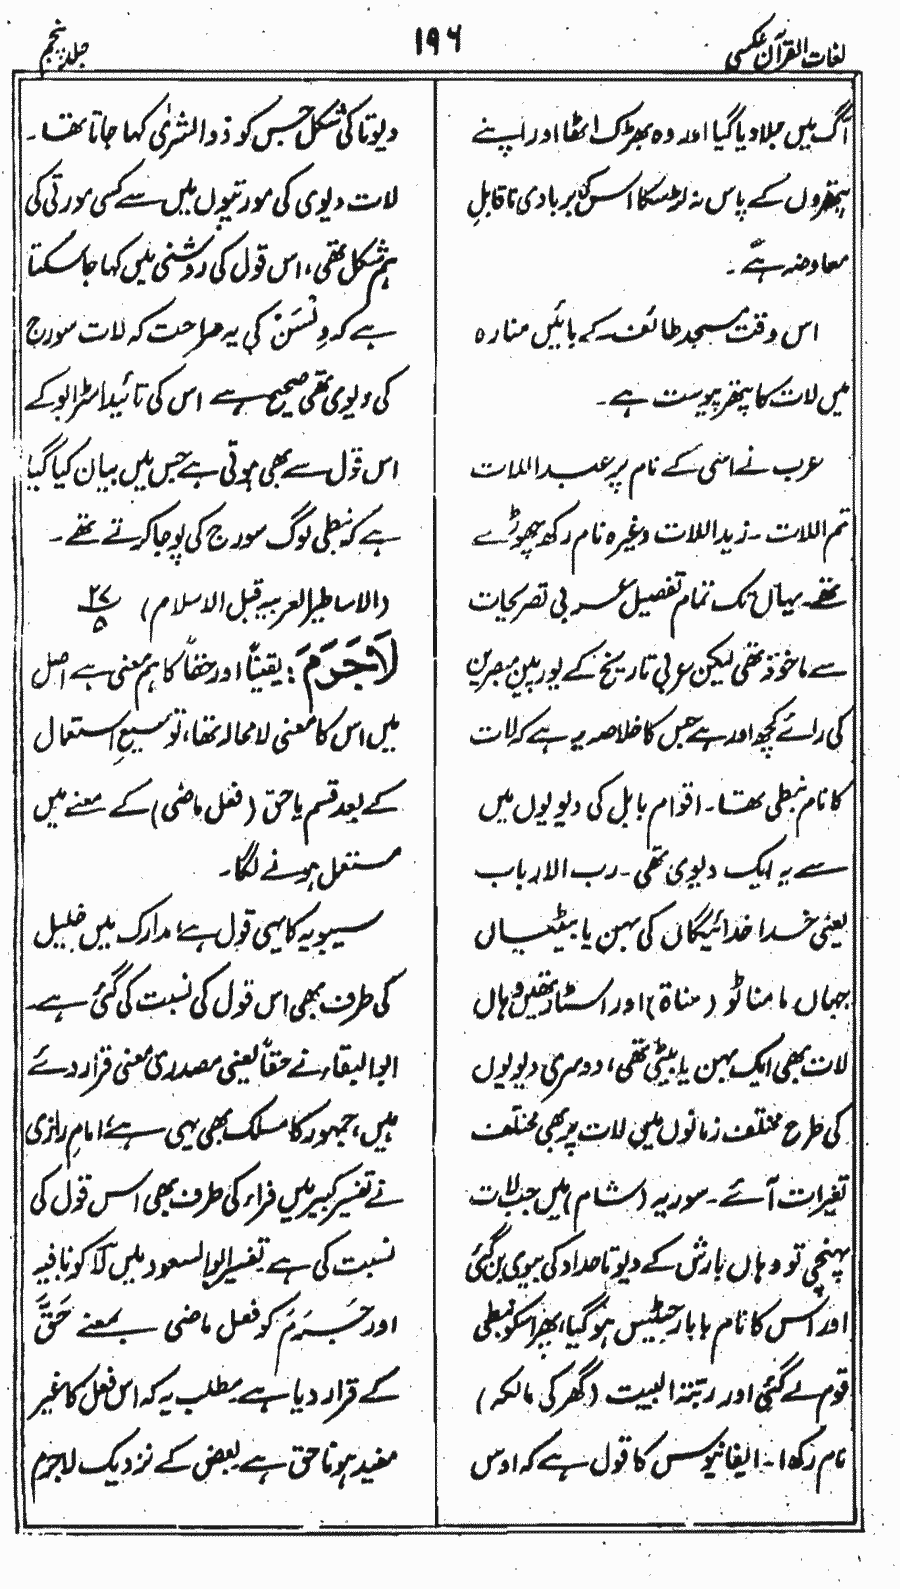 لغات القرآن عکسی
۱۹۶
جلد پنجم
آگ میں جلا دیا گیا اور وہ بھڑک اٹھا اور اپنے
پتھروں کے پاس نہ لڑ سکا اس کی بربادی ناقابلِ
معاوضہ ہے۔
اس وقت مسجد طائف کے بائیں منارہ
میں لات کا پتھر پیوست ہے۔
عرب نے اسی کے نام پر عبد اللات
تم اللات ۔ زید اللات وغیرہ نام رکھ چھوڑے
تھے۔ یہاں تک تمام تفصیل عربی تصریحات
سے ماخوذ تھی لیکن عربی تاریخ کے یورپین مبصرین
کی رائے کچھ اور ہے جس کا خلاصہ یہ ہے کہ لات
کا نام نبطی تھا۔ اقوام بابل کی دیویوں میں
سے یہ ایک دیوی تھی۔ رب الارباب
یعنی خدا خدائیگاں کی بہن یا بیٹیاں
جہاں مامناٹو (مناۃ) اور استار تھیں وہاں
لات بھی ایک بہن یا بیٹی تھی، دوسری دیویوں
کی طرح مختلف زمانوں میں لات پر بھی مختلف
تغیرات آئے۔ سوریہ (شام) میں جب لات
پہنچی تو وہاں بارش کے دیوتا حداد کی بیوی بن گئی
اور اس کا نام بابارجٹیس ہو گیا، پھر اسکو نبطی
قوم لے گئی اور ربتہ البیت (گھر کی مالکہ)
نام رکھا۔ ایفانیوس کا قول ہے کہ اوس
دیوتا کی شکل جس کو ذوالشرٰی کہا جاتا تھا۔
لات دیوی کی مورتیوں میں سے کسی مورتی کی
ہم شکل تھی، اس قول کی روشنی میں کہا جا سکتا
ہے کہ وِنسَنْ کی یہ صراحت کہ لات سورج
کی دیوی تھی صحیح ہے اس کی تائید اسٹرابو کے
اس قول سے بھی ہوتی ہے جس میں بیان کیا گیا
ہے کہ نبطی لوگ سورج کی پوجا کرتے تھے۔
(الاساطیر العربیہ قبل الاسلام) ۲۷/۵
لَاجَرَمَ: یقیناً اور حقاً کا ہم معنی ہے اصل
میں اس کا معنی لامحالہ تھا، توسیعِ استعمال
کے بعد قسم یا حق (فعل ماضی) کے معنے میں
مستعمل ہونے لگا۔
سیبویہ کا یہی قول ہے، مدارک میں خلیل
کی طرف بھی اس قول کی نسبت کی گئی ہے۔
ابو البقاء نے حقاً یعنی مصدری معنی قرار دئے
ہیں، جمہور کا مسلک بھی یہی ہے، امام رازی
نے تفسیر کبیر میں فراء کی طرف بھی اس قول کی
نسبت کی ہے تفسیر ابو السعود میں لَا کو نافیہ
اور جَرَمَ کو فعل ماضی بمعنے حَقَّ
کے قرار دیا ہے مطلب یہ کہ اس فعل کا غیر
مفید ہونا حق ہے بعض کے نزدیک لاجرم